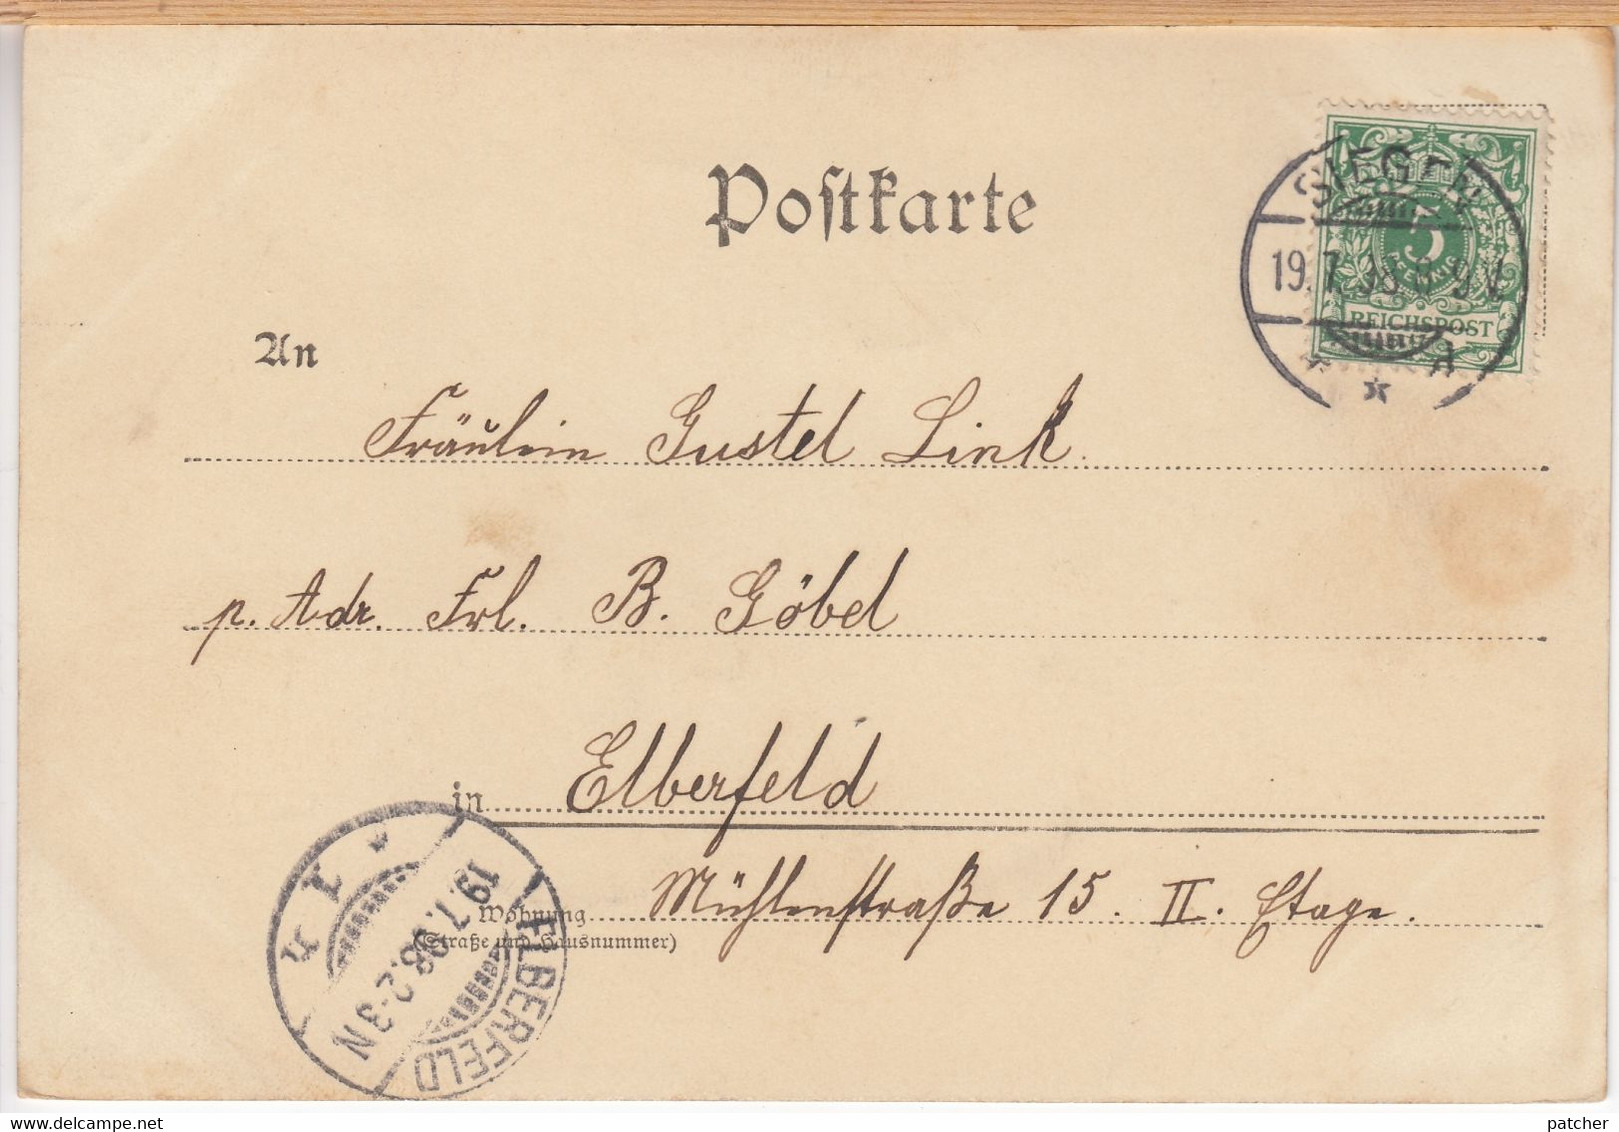 Postkarte
SIEGEN
19.7.98.8-9V.
5
PFENNIG
REICHSPOST
* * a
An
Fräulein Gustel Link
p. Adr. Frl. B. Göbel
in Elberfeld
Wohnung Mühlenstraße 15. II. Etage.
(Straße und Hausnummer)
ELBERFELD
19.7.98.2-3N
* 1 n
patcher